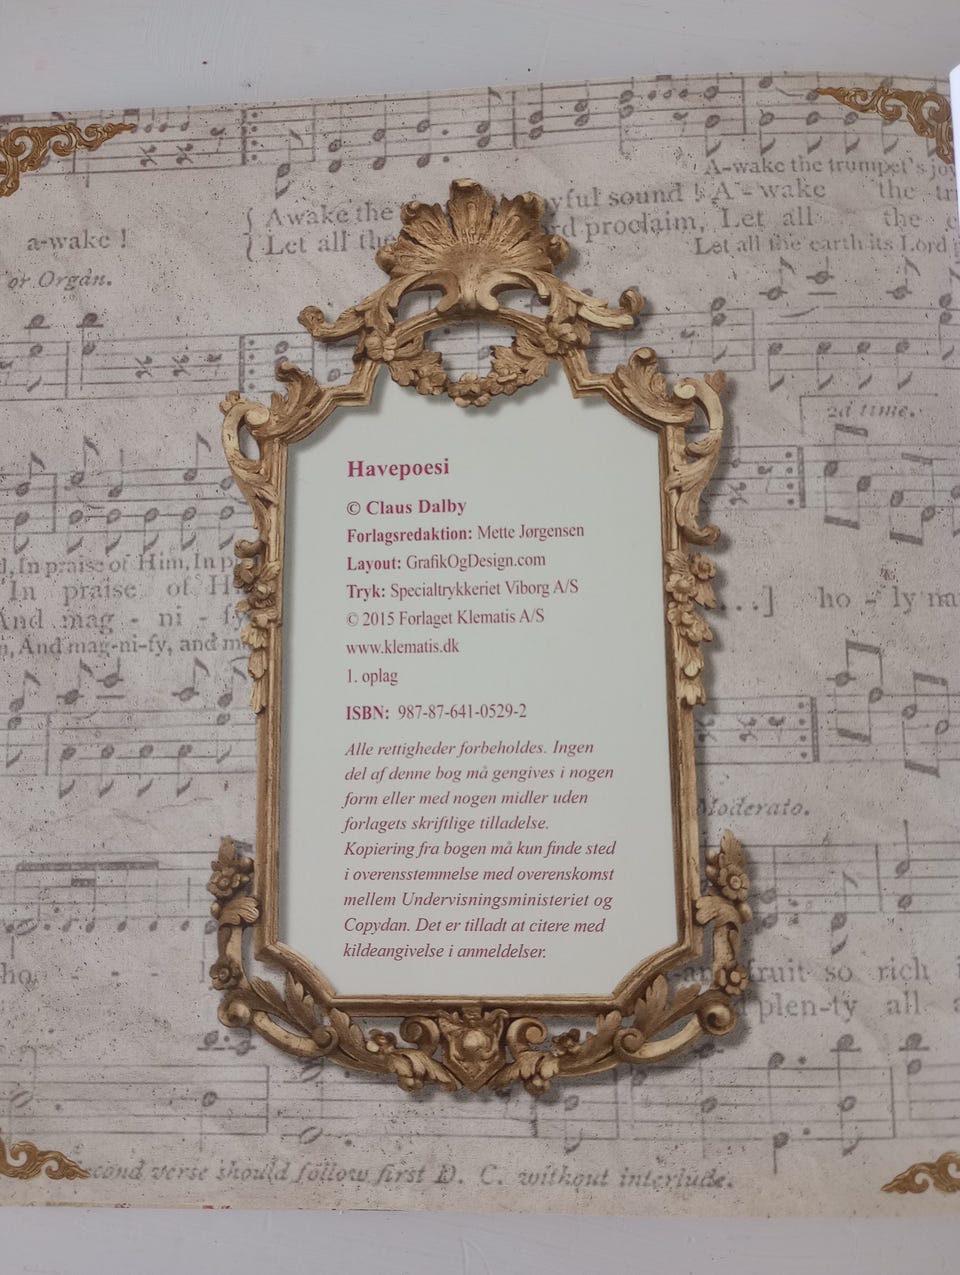 A-wake the trumpet's joy
Awake the yful sound ! A - wake the tr
Let all the rd proclaim, Let all the e
Let all the earth its Lord
a-wake !
or Organ.
2d time.
Havepoesi
© Claus Dalby
Forlagsredaktion: Mette Jørgensen
Layout: GrafikOgDesign.com
Tryk: Specialtrykkeriet Viborg A/S
© 2015 Forlaget Klematis A/S
www.klematis.dk
1. oplag
ISBN: 987-87-641-0529-2
Alle rettigheder forbeholdes. Ingen
del af denne bog må gengives i nogen
form eller med nogen midler uden
forlagets skriftlige tilladelse.
Kopiering fra bogen må kun finde sted
i overensstemmelse med overenskomst
mellem Undervisningsministeriet og
Copydan. Det er tilladt at citere med
kildeangivelse i anmeldelser.
In praise of Him, In p
In praise of H
And mag - ni - fy
And mag-ni-fy, and m
ho - ly na
Moderato.
ho - - - l
fruit so rich
plen-ty all a
second verse should follow first D. C. without interlude.